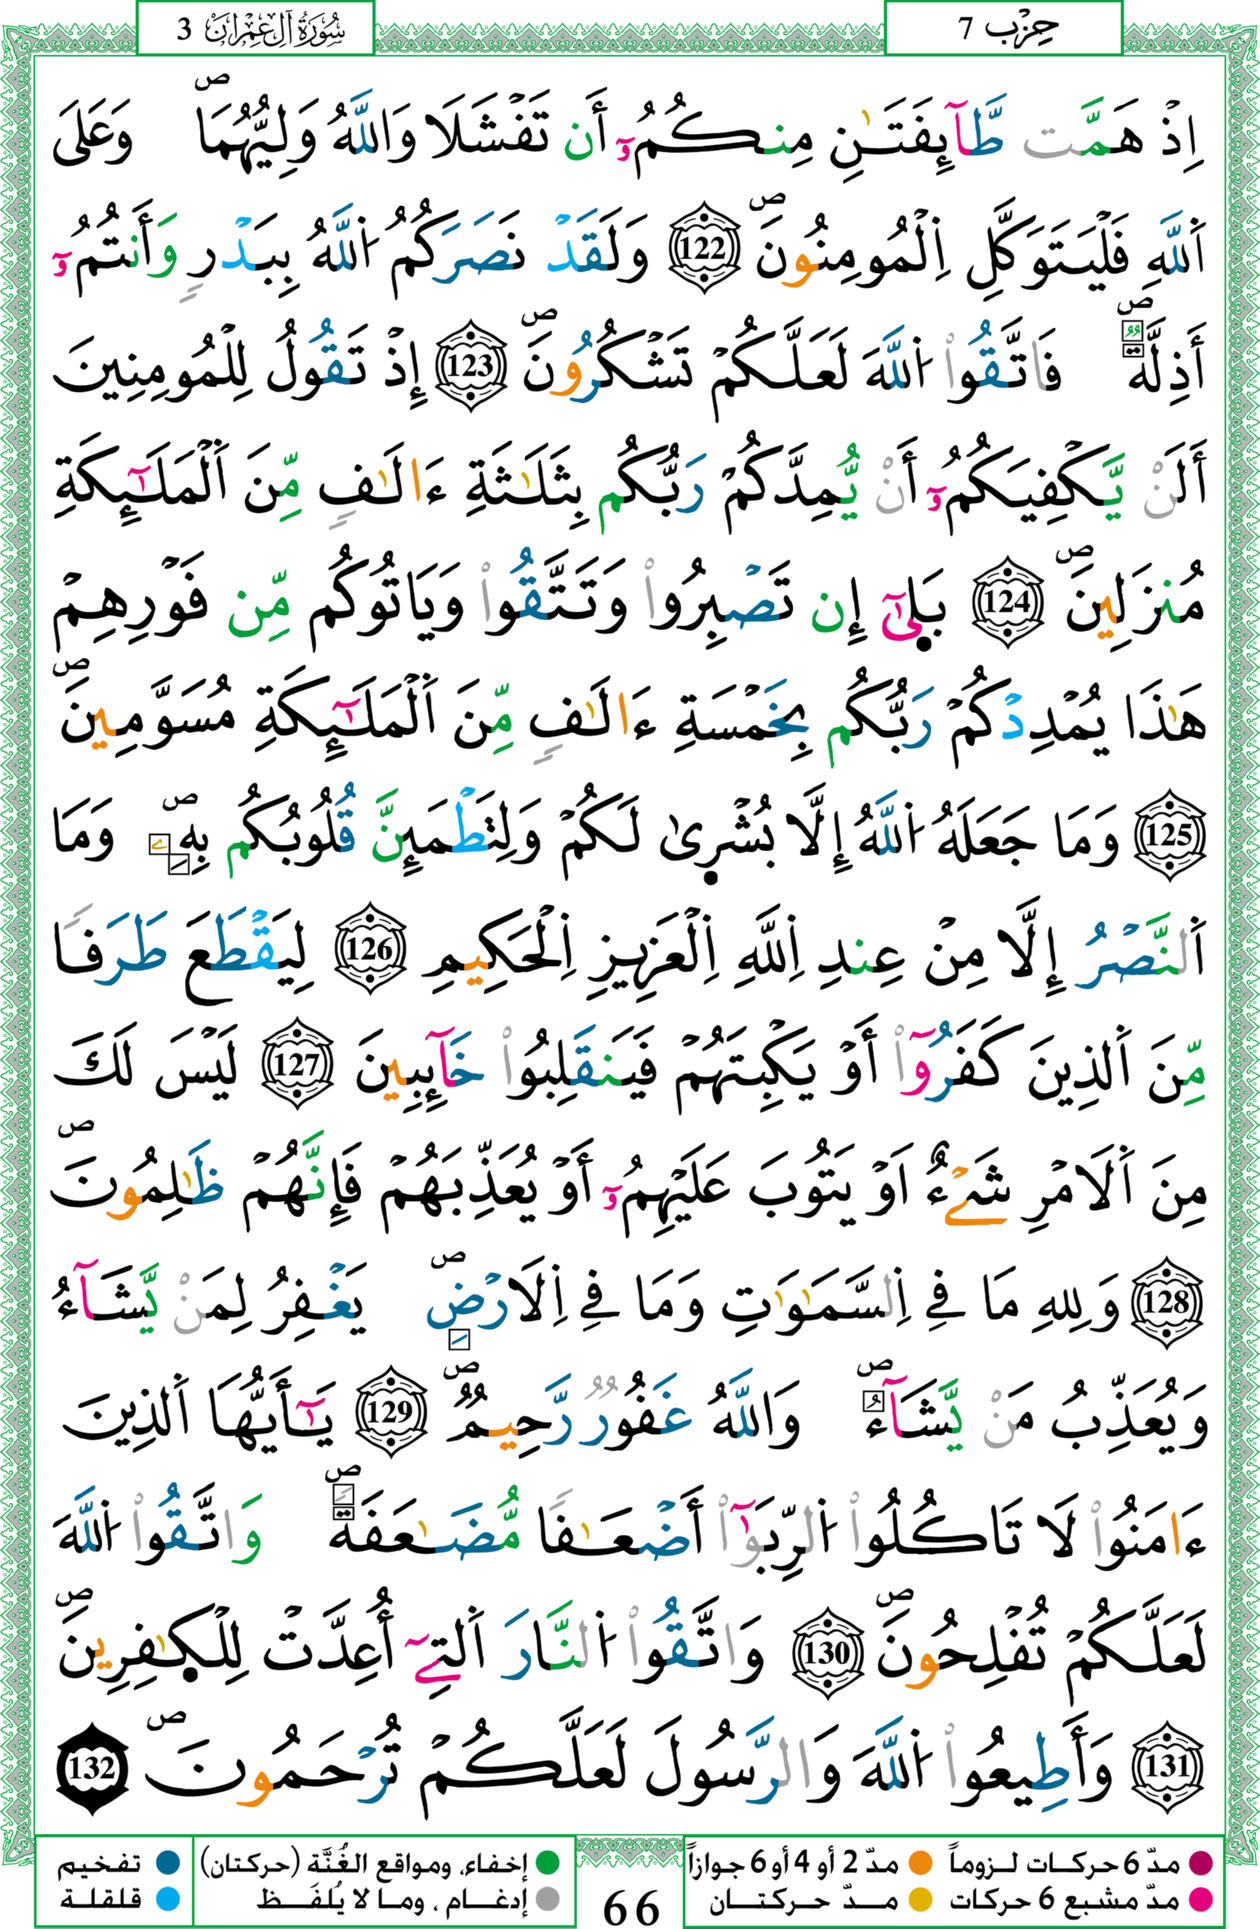 سُورَةُ آلِ عِمْرَانَ 3
حِزْب 7
إِذْ هَمَّت طَّآئِفَتَٰنِ مِنكُمُۥٓ أَن تَفْشَلَا وَاللَّهُ وَلِيُّهُمَاۖ وَعَلَى
اَللَّهِ فَلْيَتَوَكَّلِ اِلْمُومِنُونَۖ 122 وَلَقَدْ نَصَرَكُمُ اُللَّهُ بِبَدْرٍ وَأَنتُمُۥٓ
أَذِلَّةٌۖ فَاتَّقُواْ اُللَّهَ لَعَلَّكُمْ تَشْكُرُونَۖ 123 إِذْ تَقُولُ لِلْمُومِنِينَ
أَلَنْ يَّكْفِيَكُمُۥٓ أَنْ يُّمِدَّكُمْ رَبُّكُم بِثَلَٰثَةِ ءَالَٰفٍ مِّنَ اَلْمَلَٰٓئِكَةِ
مُنزَلِينَۖ 124 بَلِىٰٓ إِن تَصْبِرُواْ وَتَتَّقُواْ وَيَاتُوكُم مِّن فَوْرِهِمْ
هَٰذَا يُمْدِدْكُمْ رَبُّكُم بِخَمْسَةِ ءَالَٰفٍ مِّنَ اَلْمَلَٰٓئِكَةِ مُسَوَّمِينَۖ
125 وَمَا جَعَلَهُ اُللَّهُ إِلَّا بُشْرِىٰ لَكُمْ وَلِتَطْمَئِنَّ قُلُوبُكُم بِهِۦۖ وَمَا
اَلنَّصْرُ إِلَّا مِنْ عِندِ اِللَّهِ اِلْعَزِيزِ اِلْحَكِيمِ 126 لِيَقْطَعَ طَرَفاً
مِّنَ اَلذِينَ كَفَرُوٓاْ أَوْ يَكْبِتَهُمْ فَيَنقَلِبُواْ خَآئِبِينَ 127 لَيْسَ لَكَ
مِنَ اَلَامْرِ شَےْءٌ اَوْ يَتُوبَ عَلَيْهِمُۥٓ أَوْ يُعَذِّبَهُمْ فَإِنَّهُمْ ظَٰلِمُونَۖ
128 وَلِلهِ مَا فِے اِلسَّمَٰوَٰتِ وَمَا فِے اِلَارْضِۖ يَغْفِرُ لِمَنْ يَّشَآءُ
وَيُعَذِّبُ مَنْ يَّشَآءُۖ وَاللَّهُ غَفُورٌ رَّحِيمٌۖ 129 يَٰٓأَيُّهَا اَلذِينَ
ءَامَنُواْ لَا تَاكُلُواْ اُلرِّبَوٰٓاْ أَضْعَٰفاً مُّضَٰعَفَةًۖ وَاتَّقُواْ اُللَّهَ
لَعَلَّكُمْ تُفْلِحُونَۖ 130 وَاتَّقُواْ اُلنَّارَ اَلتِےٓ أُعِدَّتْ لِلْكٰفِرِينَۖ
131 وَأَطِيعُواْ اُللَّهَ وَالرَّسُولَ لَعَلَّكُمْ تُرْحَمُونَۖ 132
مدّ 6 حركات لـزوماً ● مدّ 2 أو 4 أو 6 جوازاً
مدّ مشبع 6 حركات ● مـدّ حركتـان
66
إخفاء، ومواقع الغُنَّة (حركتان) ● تفخيم
إدغـام ، ومـا لا يُلفَـظ ● قلقلـة